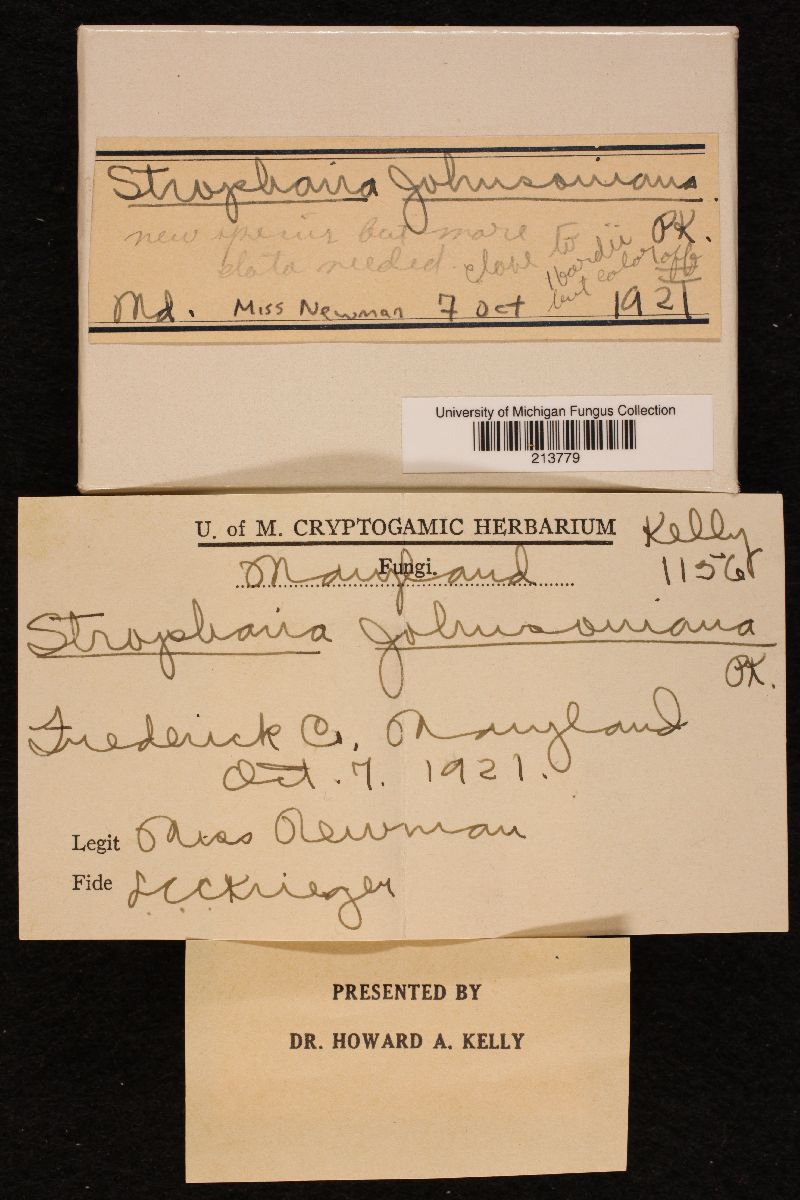 Stropharia Johnsoniana.
PK.
new species but more
data needed. close to
Hardii
but color off
Md. Miss Newman 7 Oct 1921
University of Michigan Fungus Collection
213779
U. of M. CRYPTOGAMIC HERBARIUM
Kelly
1156
Fungi.
Maryland
Stropharia Johnsoniana
PK.
Frederick Co., Maryland
Oct. 7. 1921.
Legit Miss Newman
Fide L C C Krieger
PRESENTED BY
DR. HOWARD A. KELLY